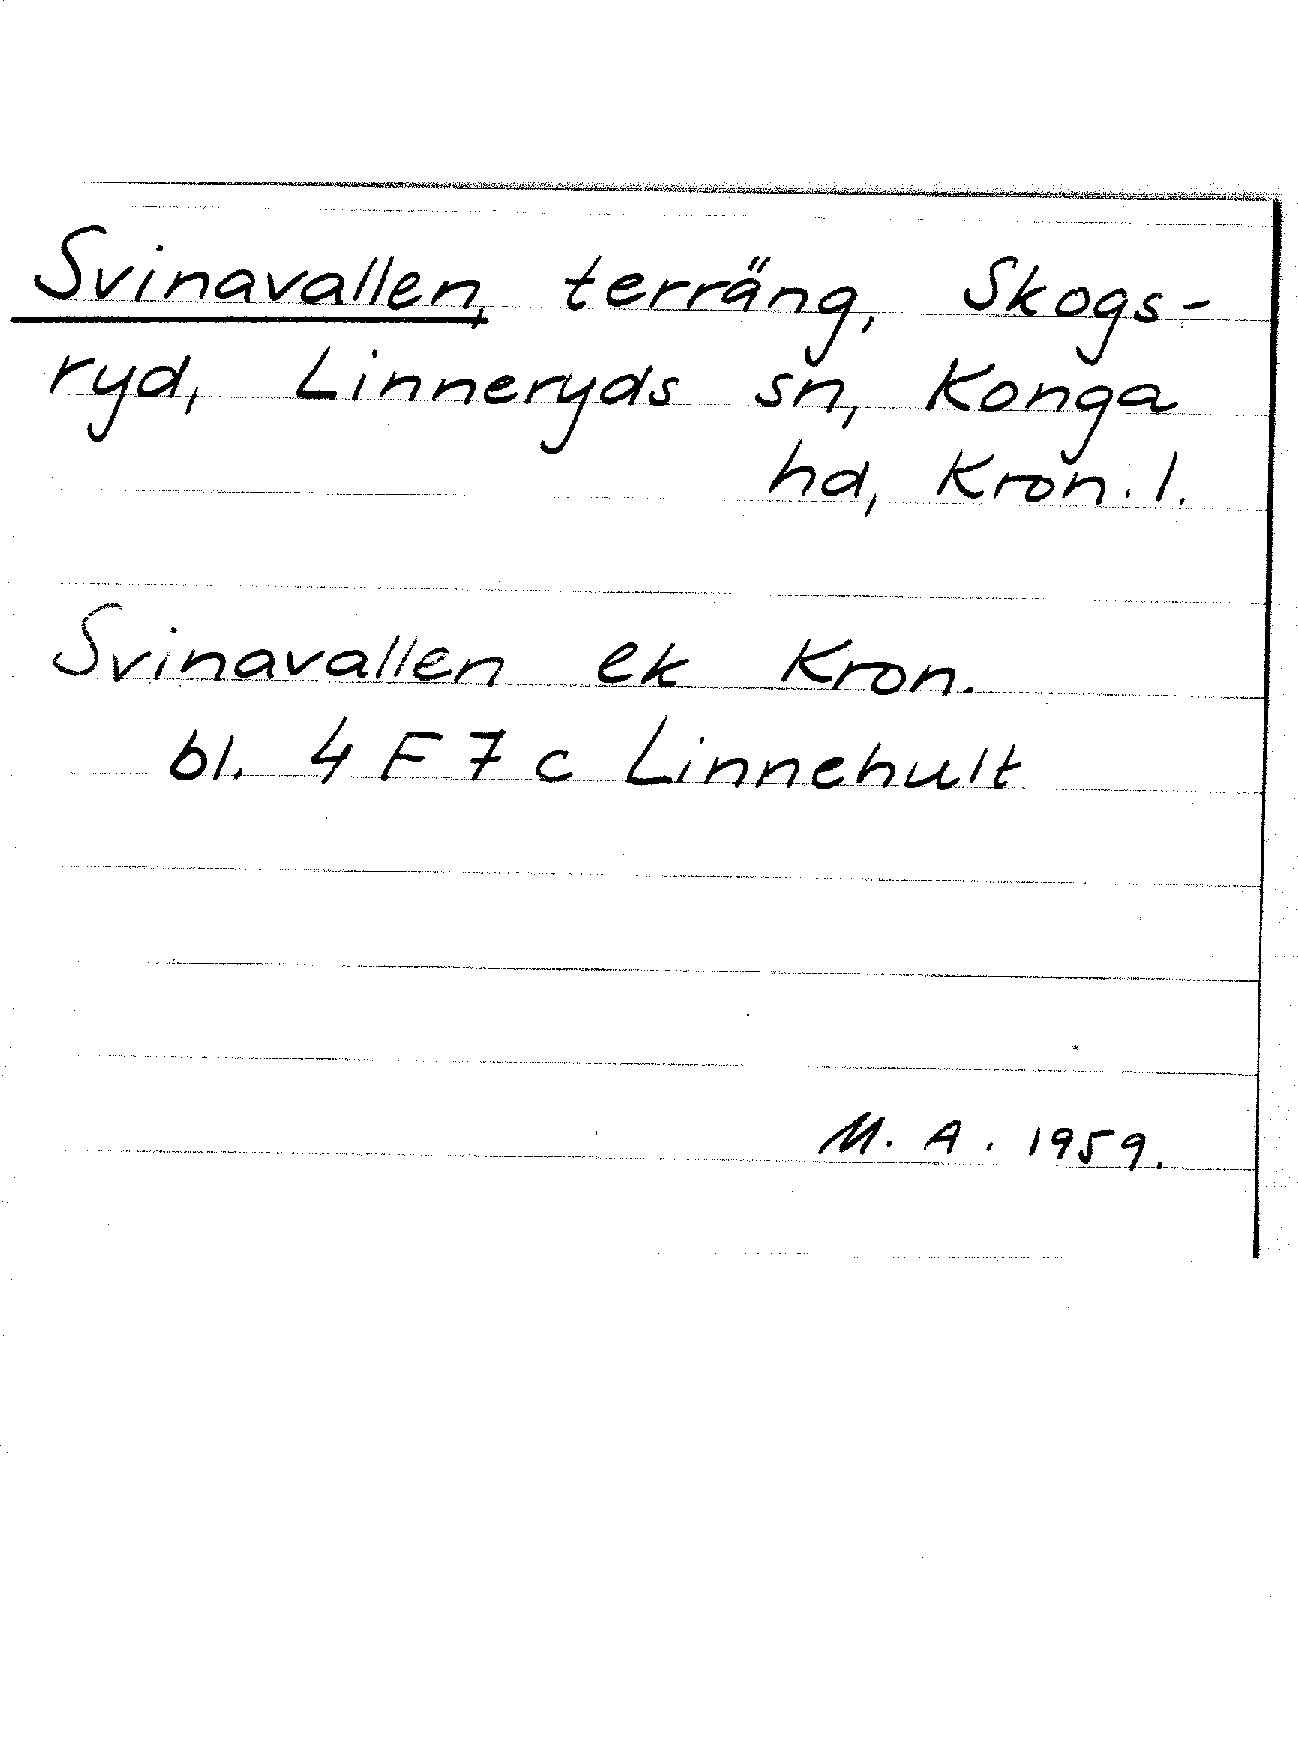 Svinavallen, terräng, Skogs-
ryd, Linneryds sn, Konga
hd, Kron. l.
Svinavallen ek Kron.
bl. 4 F 7 c Linnehult
M. A. 1959.